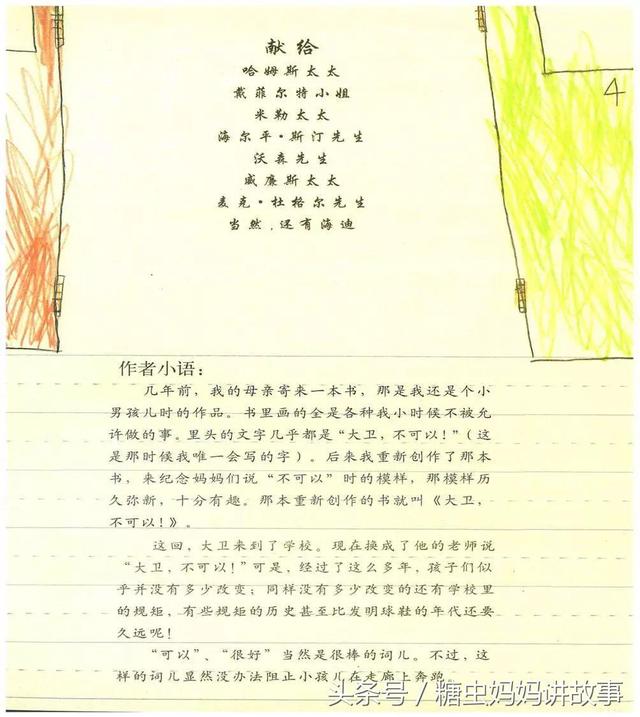 献给
哈姆斯太太
戴菲尔特小姐
米勒太太
海尔平·斯汀先生
沃森先生
威廉斯太太
麦克·杜格尔先生
当然,还有海迪
4
作者小语：
几年前，我的母亲寄来一本书，那是我还是个小
男孩儿时的作品。书里画的全是各种我小时候不被允
许做的事。里头的文字几乎都是“大卫，不可以！”（这
是那时候我唯一会写的字）。后来我重新创作了那本
书，来纪念妈妈们说“不可以”时的模样，那模样历
久弥新，十分有趣。那本重新创作的书就叫《大卫，
不可以！》。
这回，大卫来到了学校。现在换成了他的老师说
“大卫，不可以！”可是，经过了这么多年，孩子们似
乎并没有多少改变；同样没有多少改变的还有学校里
的规矩，有些规矩的历史甚至比发明球鞋的年代还要
久远呢！
“可以”、“很好”当然是很棒的词儿。不过，这
样的词儿显然没办法阻止小孩儿在走廊上奔跑。
头条号／糖虫妈妈讲故事